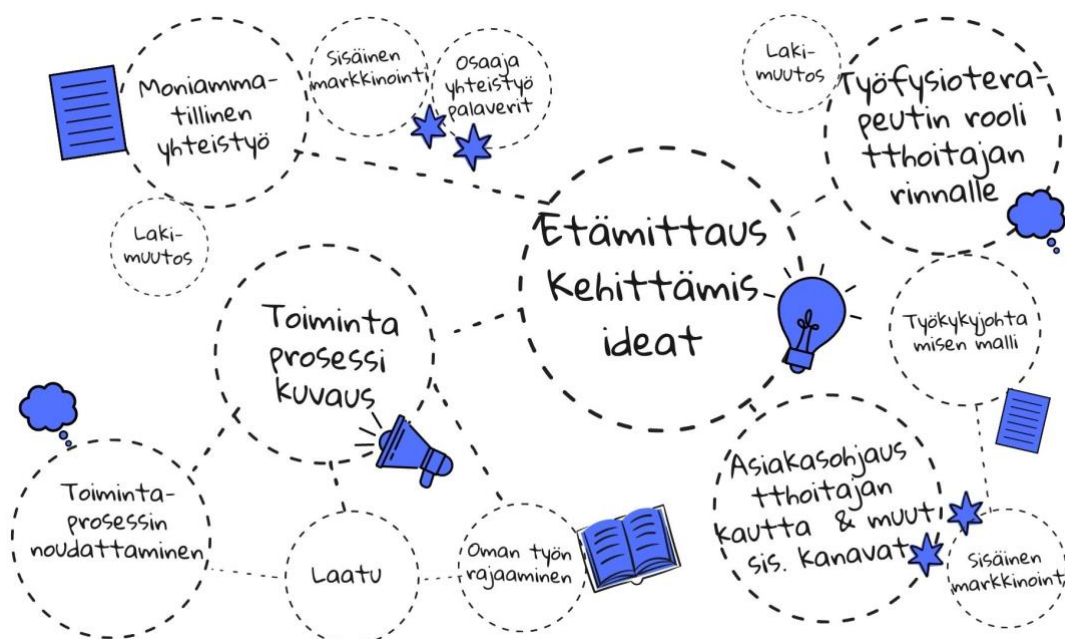 Moniamma-
tillinen
yhteistyö
Sisäinen
markkinointi
Osaaja
yhteistyö
palaverit
Laki-
muutos
Työfysiotera-
peutin rooli
tthoitajan
rinnalle
Laki-
muutos
Etämittaus
Kehittämis
ideat
Toiminta
prosessi
kuvaus
Työkykyjohta
misen malli
Toiminta-
prosessin
noudattaminen
Laatu
Oman työn
rajaaminen
Asiakasohjaus
tthoitajan
kautta & muut
sis. kanavat
Sisäinen
markkinointi